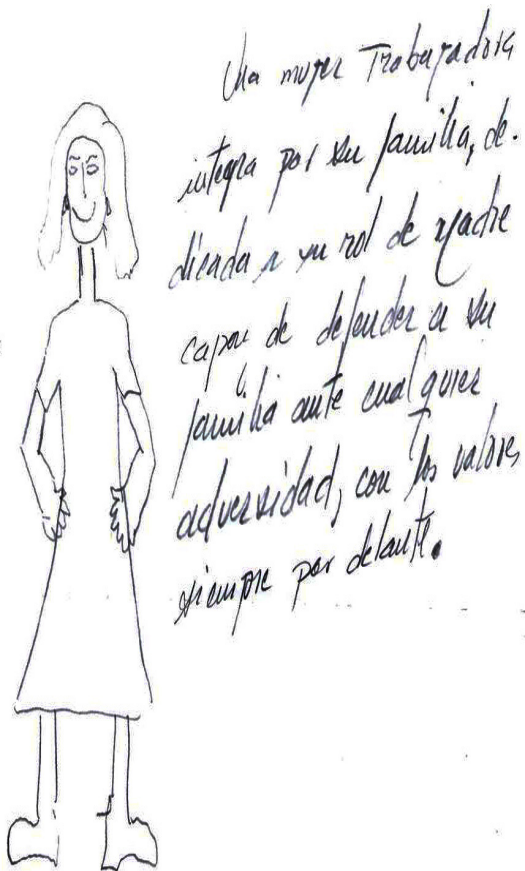 Una mujer Trabajadora
integra por su familia, de.
dicada a su rol de madre
capaz de defender a su
familia ante cualquier
adversidad, con los valores
siempre por delante.